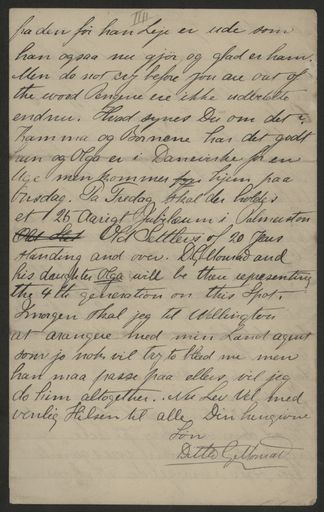 IIII
paaden for han Leje er ude som
han ogsaa nu gjør og glad er han.
Men do not cry before you are out of
the wood Pengene ere ikke udbetalte
endnu. Hvad synes Du om det?
Mamma og Børnene har det godt
hun og Olga er i Danevirke for en
Uge men kommer hjem paa
Torsdag. Paa Fredag skal der holdes
et 25 Aarigt Jubilæum i Palmerston
Old Settlers of 20 Years
standing and over. DGMonrad and
his daughter Olga will be there representing
the 4th generation on this Spot.
Imorgen skal jeg til Wellington
at arangere med min Land agent
som jo nok vil try to bleed me men
han maa passe paa ellers vil jeg
do him altogether. Nu Lev Vel med
venlig Hilsen til alle, Din hengivne
Søn
Ditlev G Monrad